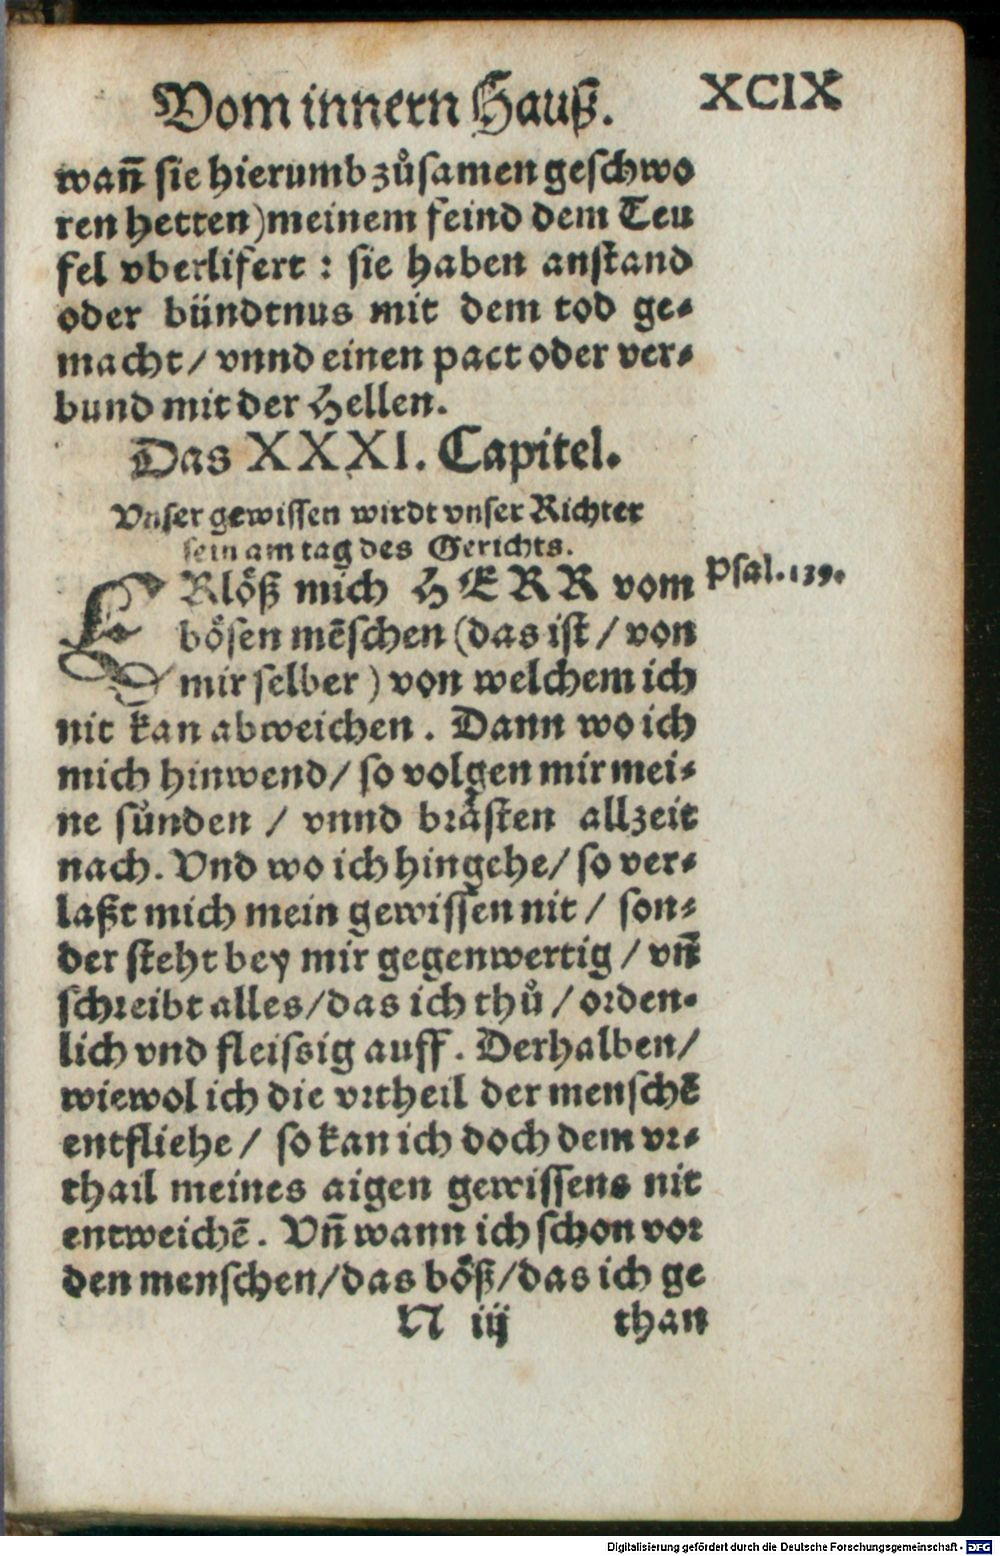 Vom innern Hauß. XCIX
wañ sie hierumb zůsamen geschwo
ren hetten) meinem feind dem Teu
fel vberlifert : sie haben anstand
oder bündtnus mit dem tod ge-
macht / vnnd einen pact oder ver-
bund mit der Hellen.
Das XXXI. Capitel.
Vnser gewissen wirdt vnser Richter
sein am tag des Gerichts.
ERlöß mich HERR vom Psal. 139.
bösen mēschen (das ist / von
mir selber) von welchem ich
nit kan abweichen. Dann wo ich
mich hinwend / so volgen mir mei-
ne sünden / vnnd bråsten allzeit
nach. Vnd wo ich hingehe / so ver-
laßt mich mein gewissen nit / son-
der steht bey mir gegenwertig / vñ
schreibt alles / das ich thů / orden-
lich vnd fleissig auff. Derhalben /
wiewol ich die vrtheil der menschē
entfliehe / so kan ich doch dem vr-
thail meines aigen gewissens nit
entweichē. Vñ wann ich schon vor
den menschen / das böß / das ich ge
N iij than
Digitalisierung gefördert durch die Deutsche Forschungsgemeinschaft - DFG